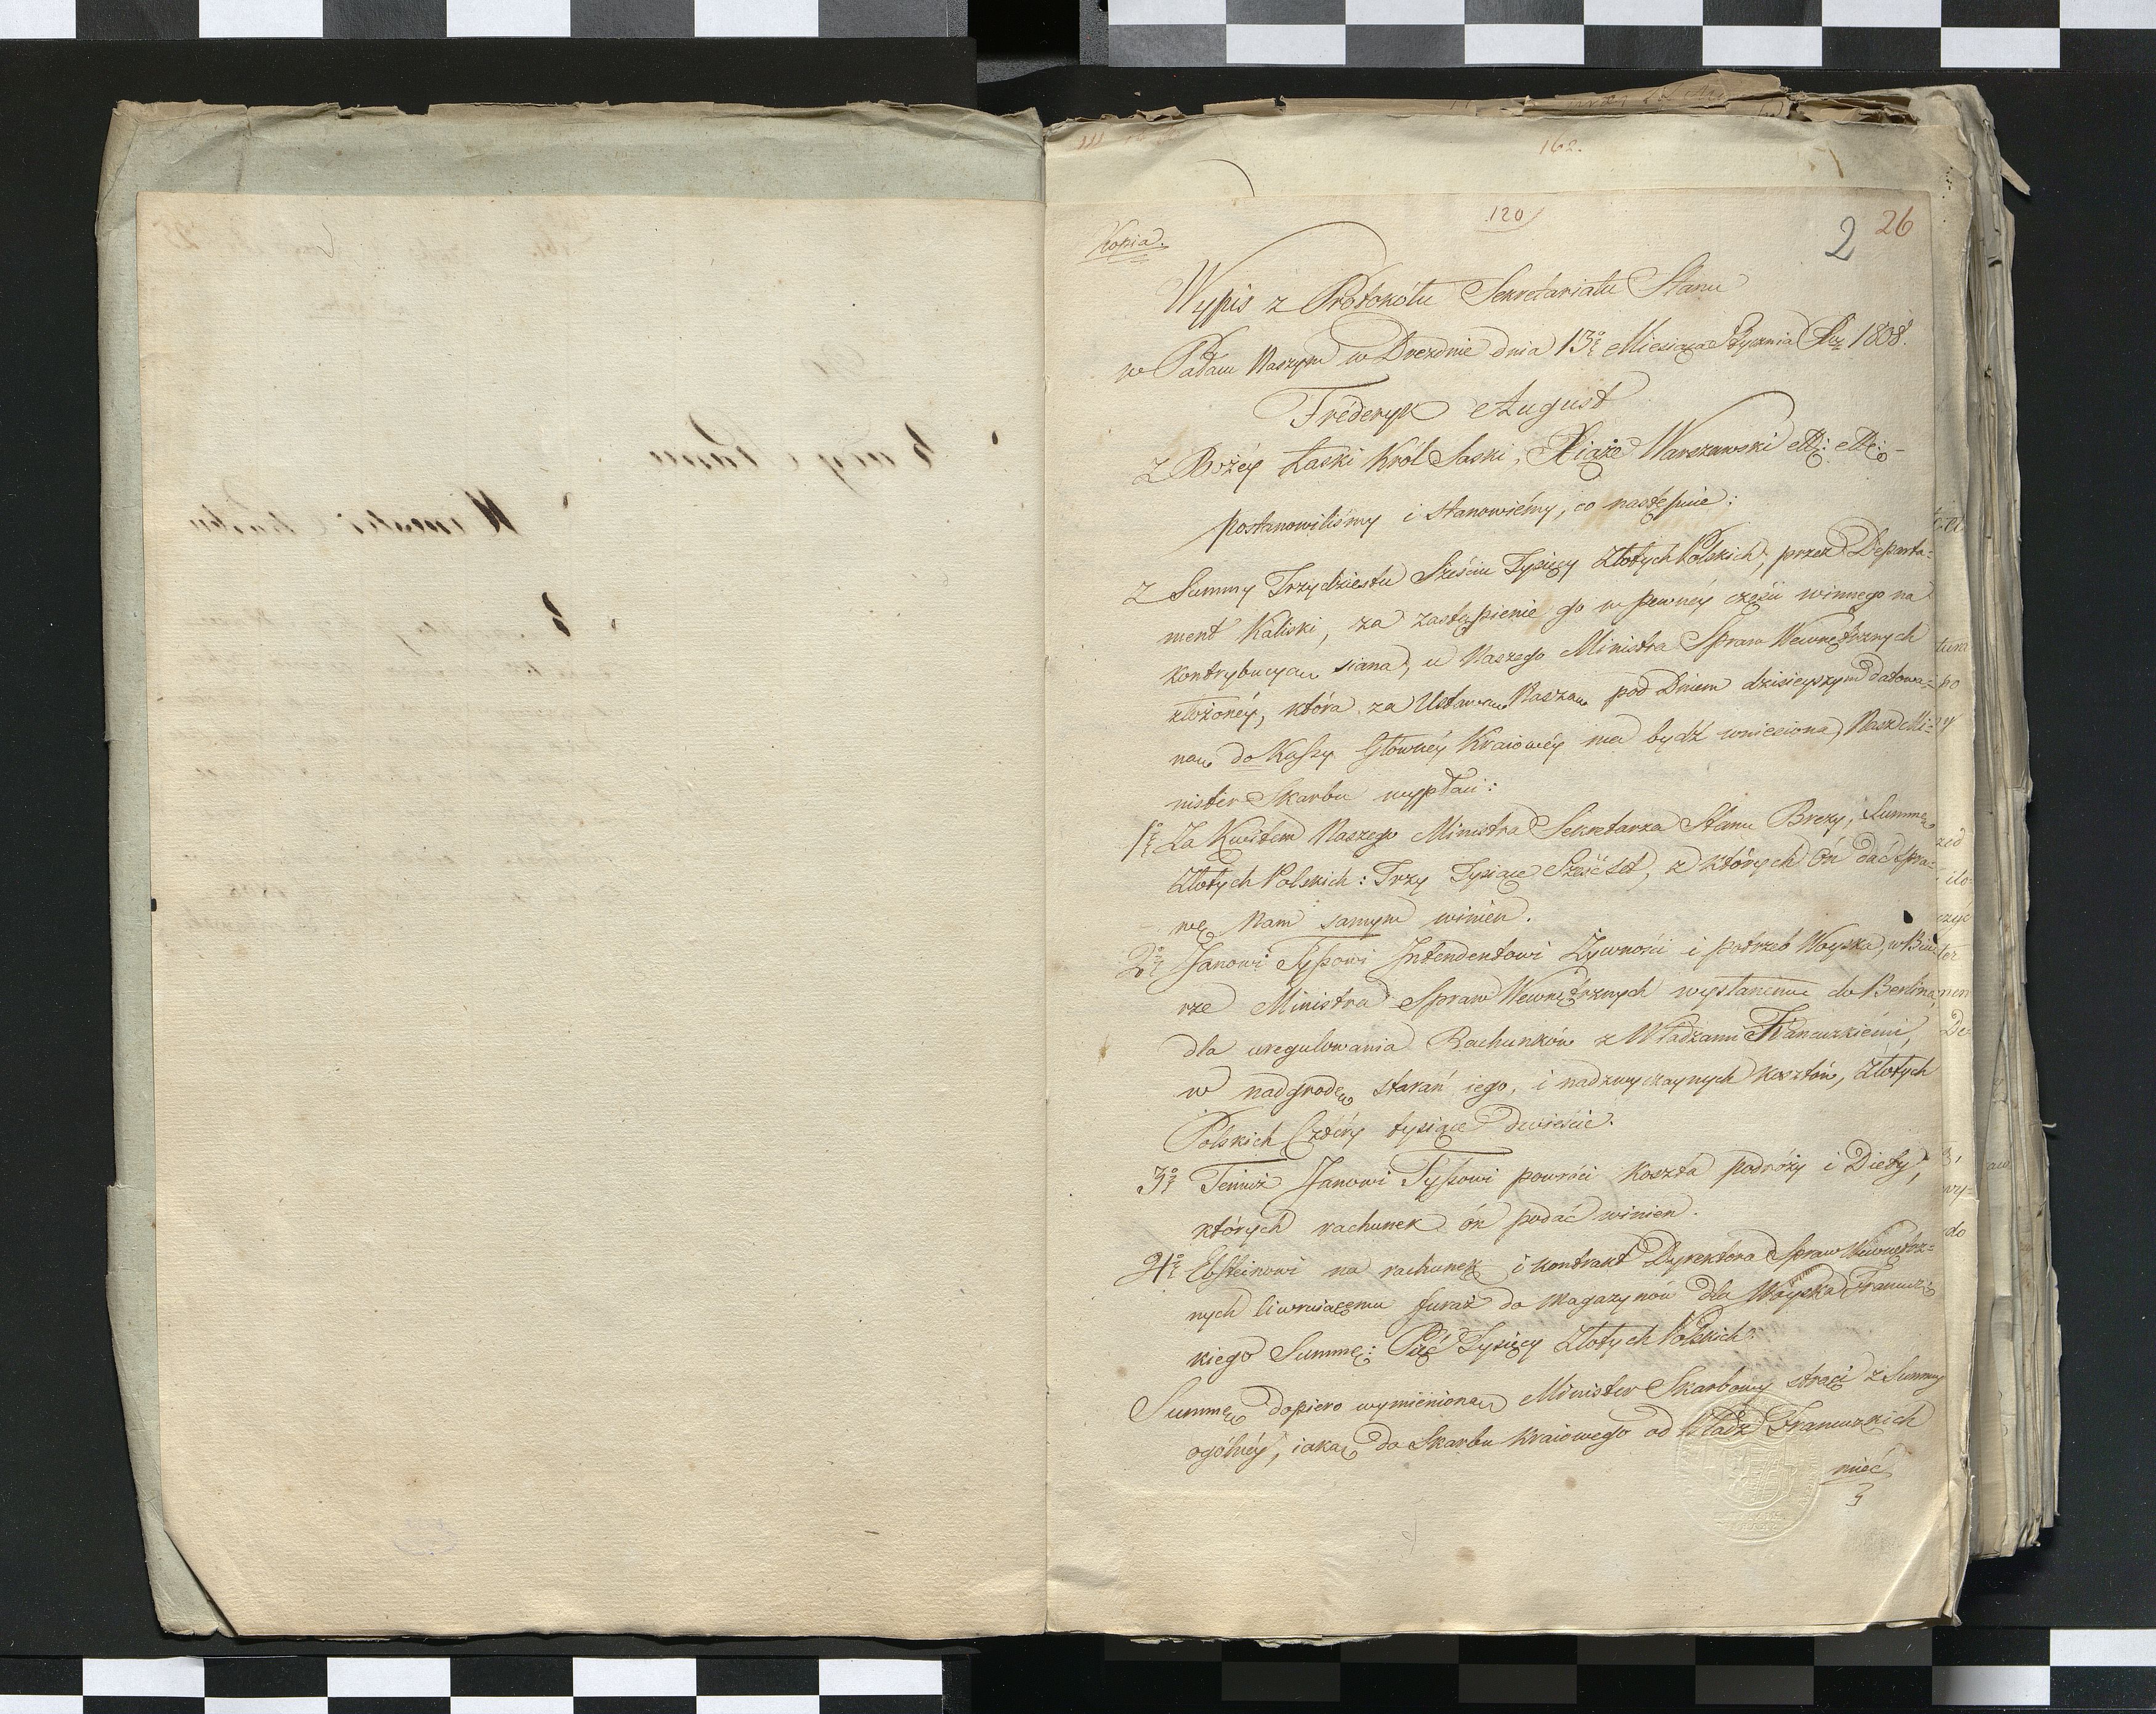 162.
120
2 26
Kopia.
Wypis z Protokółu Sekretariatu Stanu
w Pałacu Naszym w Dreznie dnia 13º Miesiąca Stycznia Rku 1808.
Fréderyk August
z Bożéy Łaski Król Saski, Xiąże Warszawski etc: etc:
postanowiliśmy i stanowiémy, co następuie:
z Summy Trzydziestu Sześciu Tysięcy Złotych Polskich, przez Departa=
ment Kaliski, za zastąpienie go w pewnéy części winnego na
kontrybucyą siana, u Naszego Ministra Spraw Wewnętrznych
złożonéy, która za Ustawą Naszą pod Dniem dzisieyszym datowa=
ną do Kassy Głównéy Kraiowéy ma bydź wniesiona, Nasz Mi=
nister Skarbu wypłaci:
1º Za Kwitem Naszego Ministra Sekretarza Stanu Brezy, Summę
Złotych Polskich: Trzy Tysiące Sześćset, z których On dać spra=
wę Nam samym winien.
2º Janowi Tyssowi Intendentowi Żywności i potrzeb Woyska, w Biu
rze Ministra Spraw Wewnętrznych wysłanemu do Berlina,
dla uregulowania Rachunków z Władzami Francuzkiémi,
w nadgrodę starań iego, i nadzwyczaynych kosztów, Złotych
Polskich Cztéry tysiące dwieście.
3º Temuż Janowi Tyssowi powróci koszta podróży i Diety,
których rachunek ón podać winien.
4º Ebsteinowi na rachunek i kontrakt Dyrektora Spraw Wewnętrz=
nych liwruiącemu furaż do Magazynów dla Woyska Francuz=
kiego Summę: Pięć Tysięcy Złotych Polskich.
Summę dopiero wymienioną Minister Skarbowy strąci z Summy
ogólnéy, iaką do Skarbu Kraiowego od Władz Francuzkich
mieć